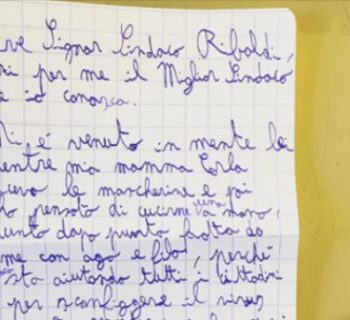 ve Signor Sindaco Ribaldi,
i per me il Miglior Sindaco
e io conosca.
Mi é venuto in mente lei
entre mia mamma Carla
ceva le mascherine e poi
o pensato di cucirne una a mano,
unto dopo punto fatta da
me con ago e filo, perché
sta aiutando tutti i cittadini
per sconfiggere il virus